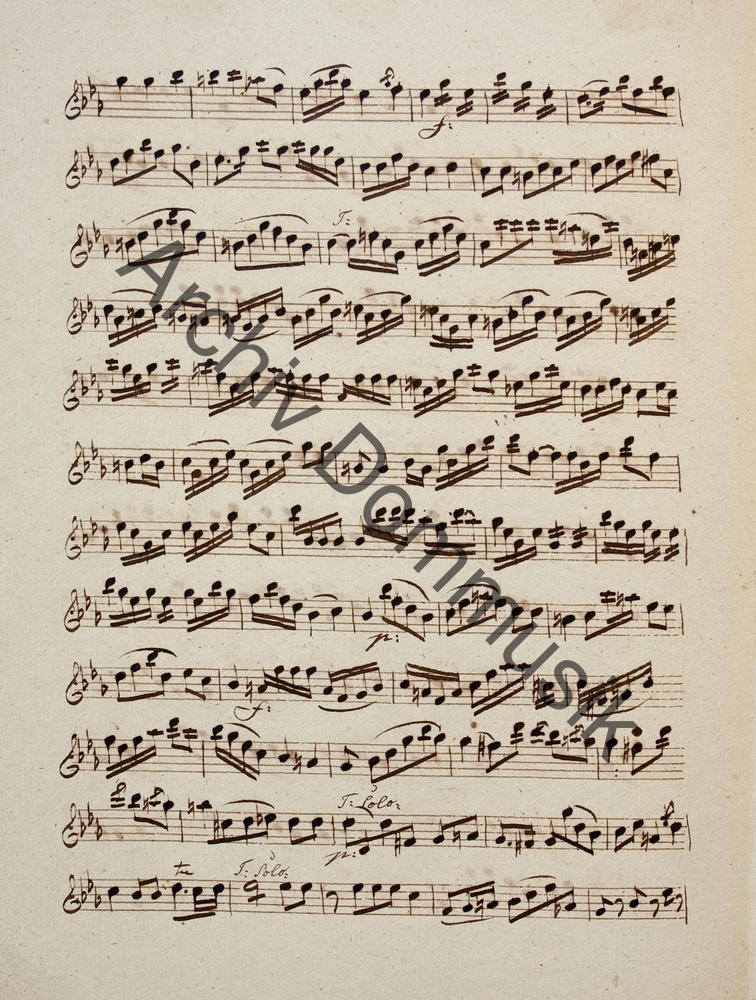 f:
T:
p:
f:
T: Solo:
p:
tr T: Solo:
Archiv Dommusik